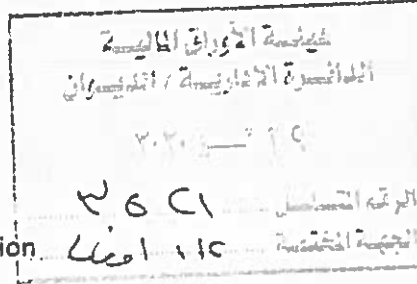 هيئة الأوراق المالية
الدائرة الإدارية / الديوان
٢٠٢٠
الرقم المتسلسل ٣٥٢١
الجهة المختصة
ion